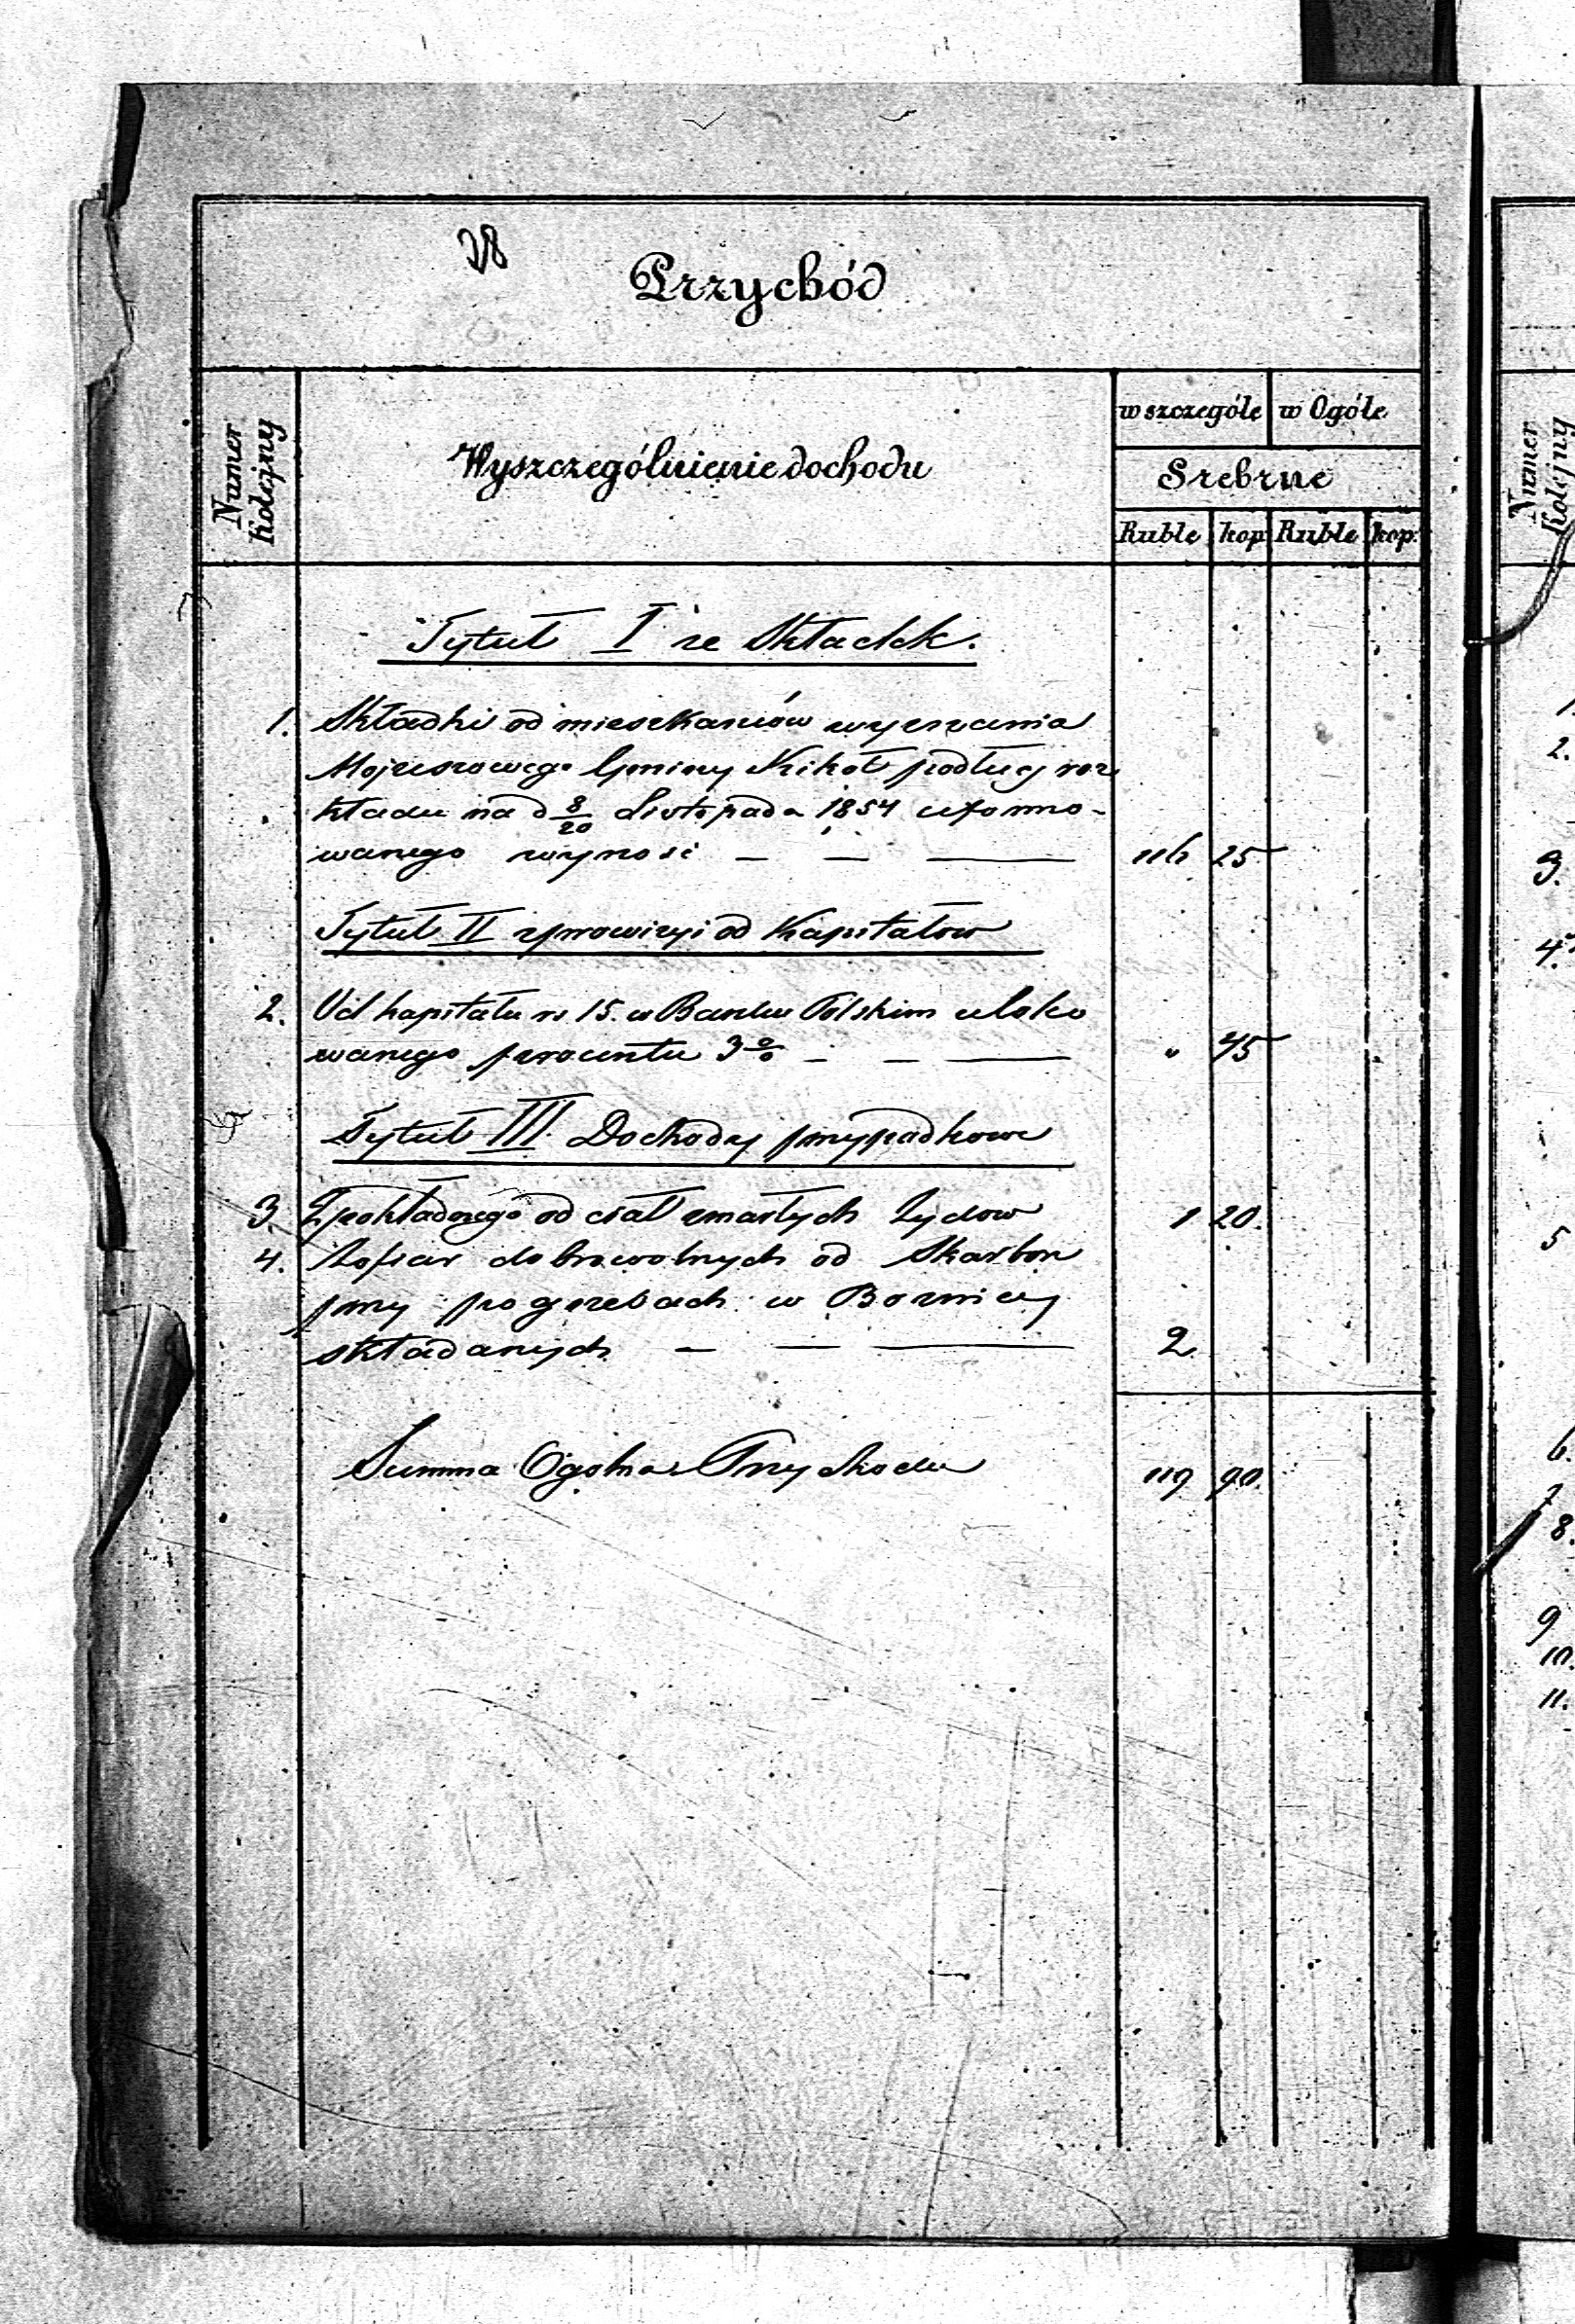 28
Przychód
Numer Kolejny
Wyszczególnienie dochodu
w szczególe w Ogóle
Srebrne
Ruble kop Ruble kop.
Tytuł I ze Składek.
1. Składki od mieszkańców wyznania
Mojżeszowego Gminy Kikoł podług roz
kładu na d 8/20 Listopada 1854 uformo-
wanego wynosi — — — 116 25
Tytuł II z prowizyi od Kapitałow
2. Od kapitału rs 15. w Banku Polskim uloko
wanego procentu 3% — — — " 45
Tytuł III. Dochody przypadkowe
3. Z pokładnego od ciał zmarłych Zydow 1 20.
4. Z ofiar dobrowolnych od Skarbon
przy pogrzebach w Boznicy
składanych — — — 2.
Summa Ogolna Przychodu 119 90.
Numer Kolejny
1.
2.
3.
4.
5
6.
7
8.
9
10.
11.